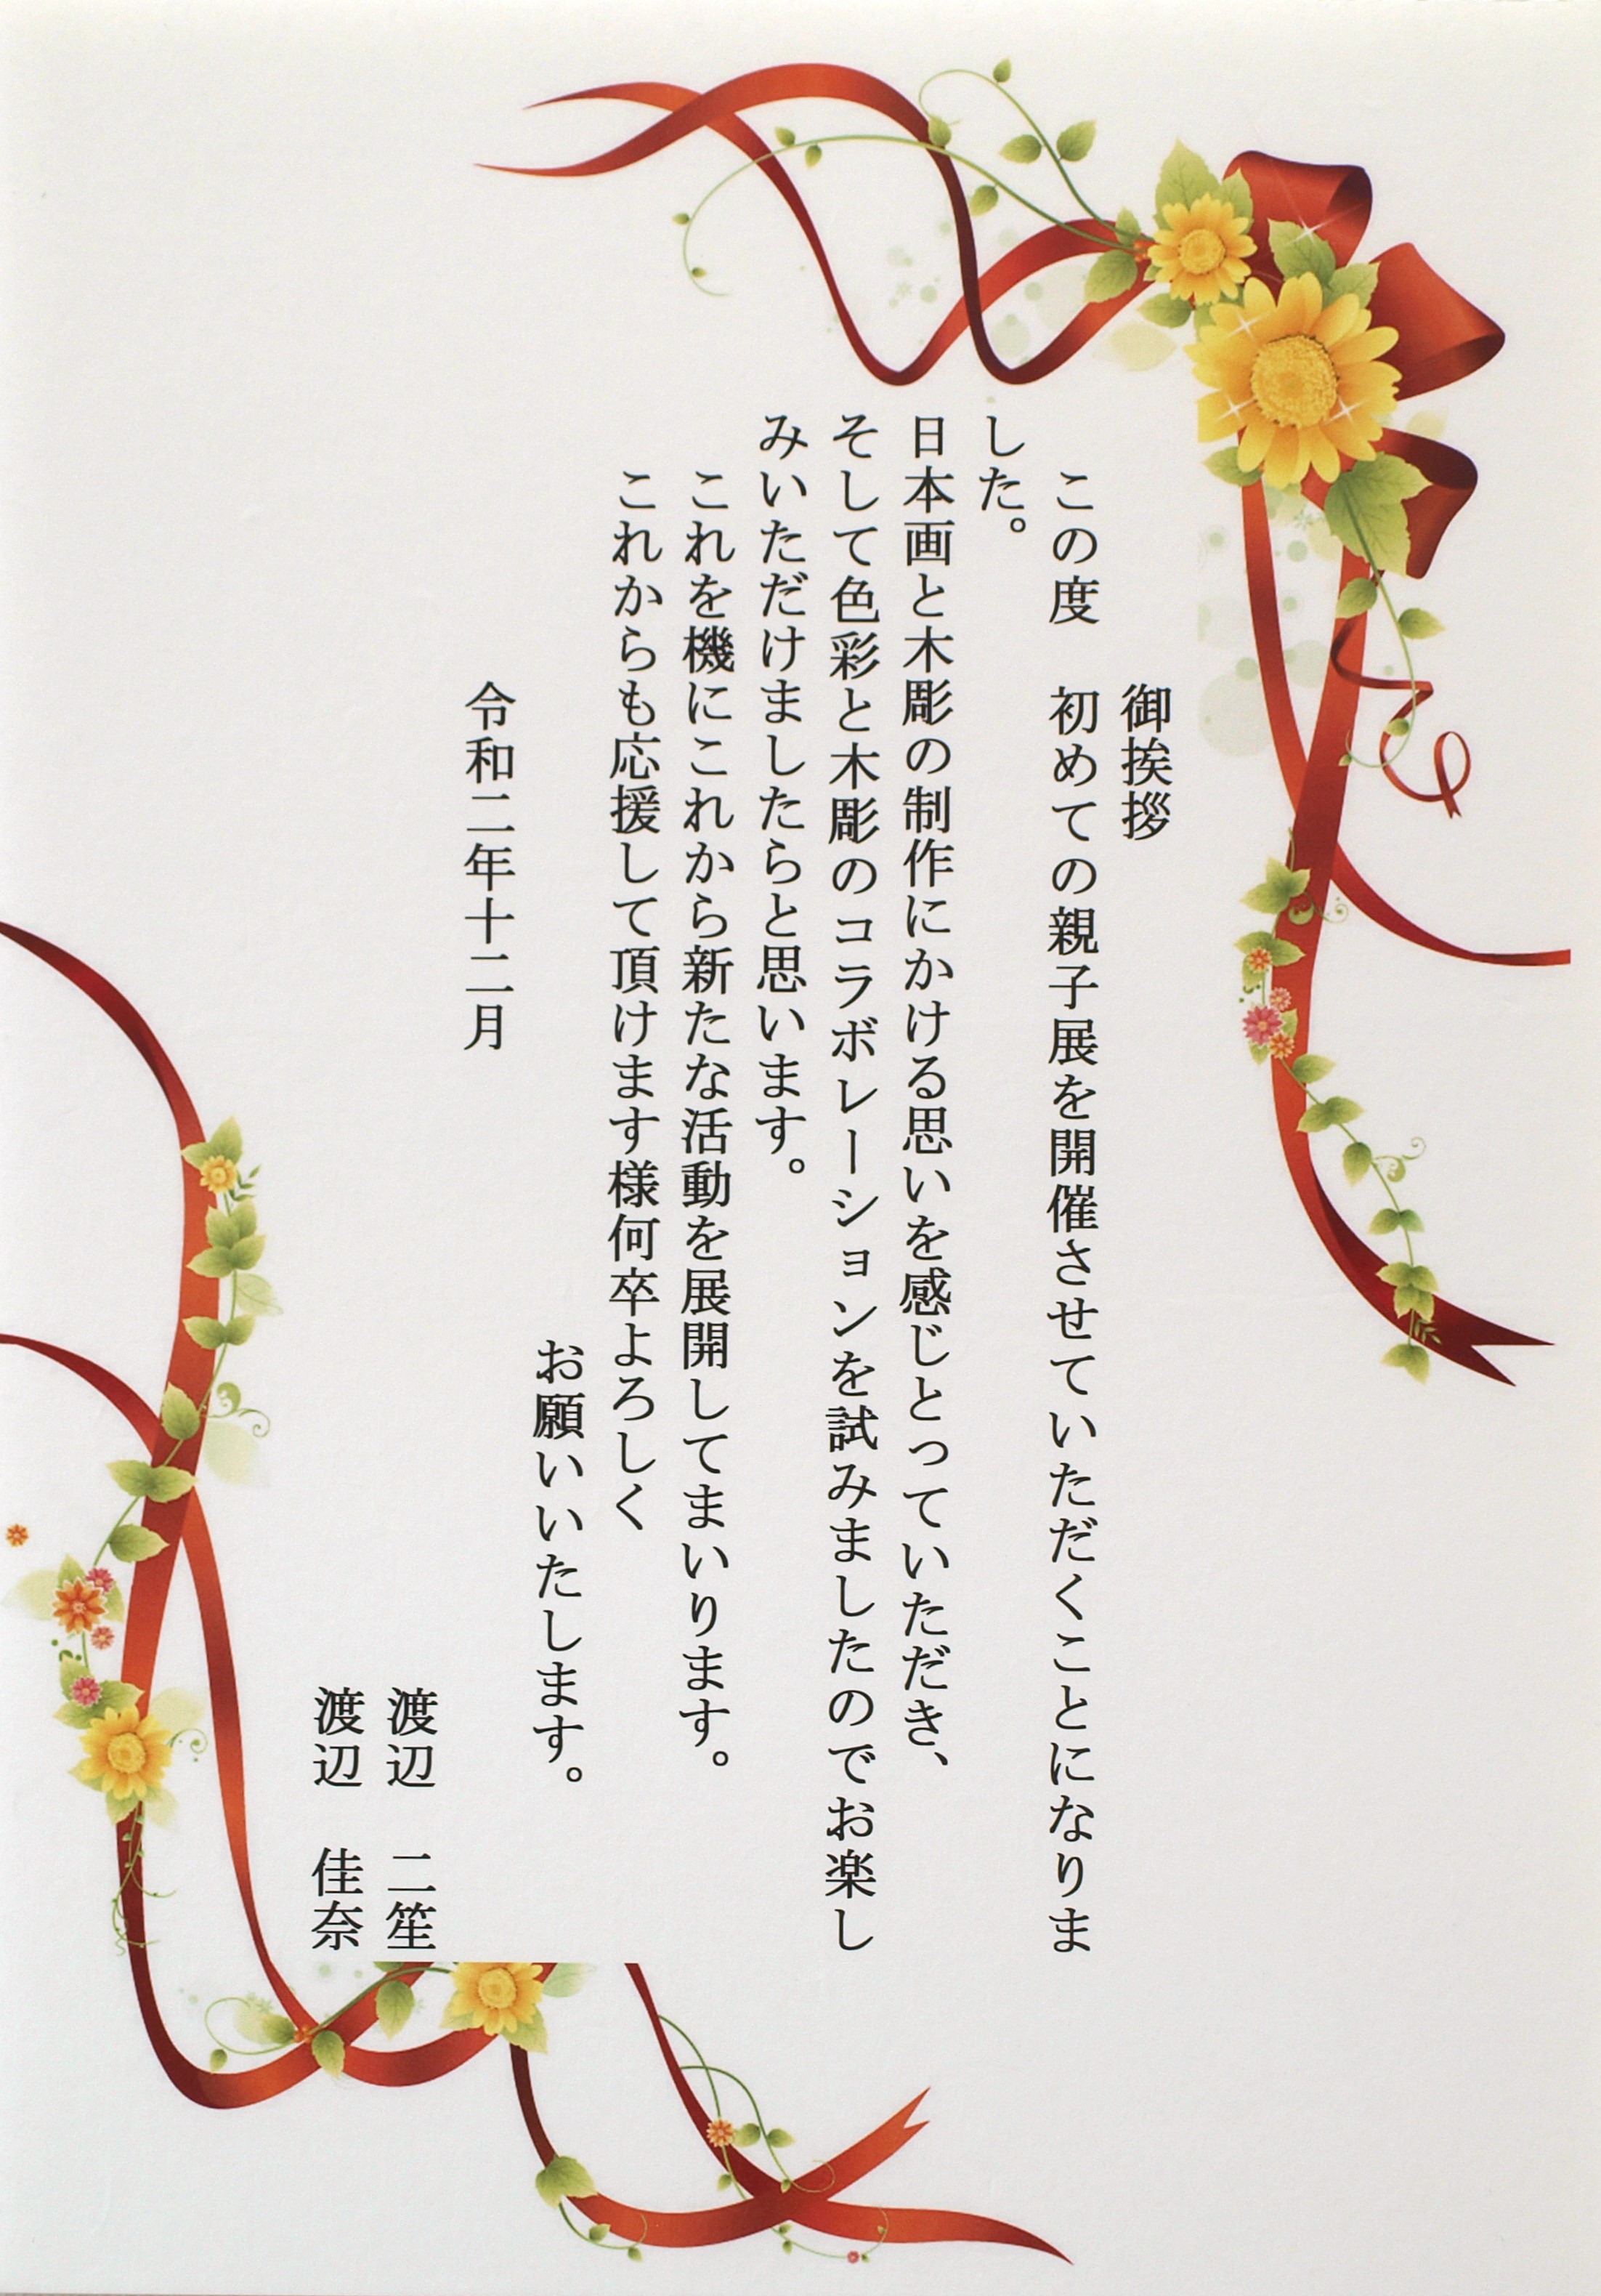 御挨拶
この度　初めての親子展を開催させていただくことになりま
した。
日本画と木彫の制作にかける思いを感じとっていただき、
そして色彩と木彫のコラボレーションを試みましたのでお楽し
みいただけましたらと思います。
これを機にこれから新たな活動を展開してまいります。
これからも応援して頂けます様何卒よろしく
お願いいたします。
令和二年十二月
渡辺　二笙
渡辺　佳奈